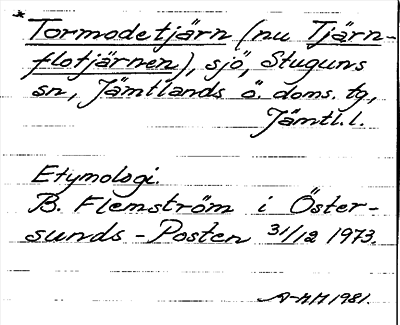 * Tormodetjärn (nu Tjärn-
flotjärnen), sjö, Stuguns
sn, Jämtlands ö. doms. tg,
Jämtl. l.
Etymologi.
B. Flemström i Öster-
sunds-Posten 31/12 1973.
A-MH 1981.